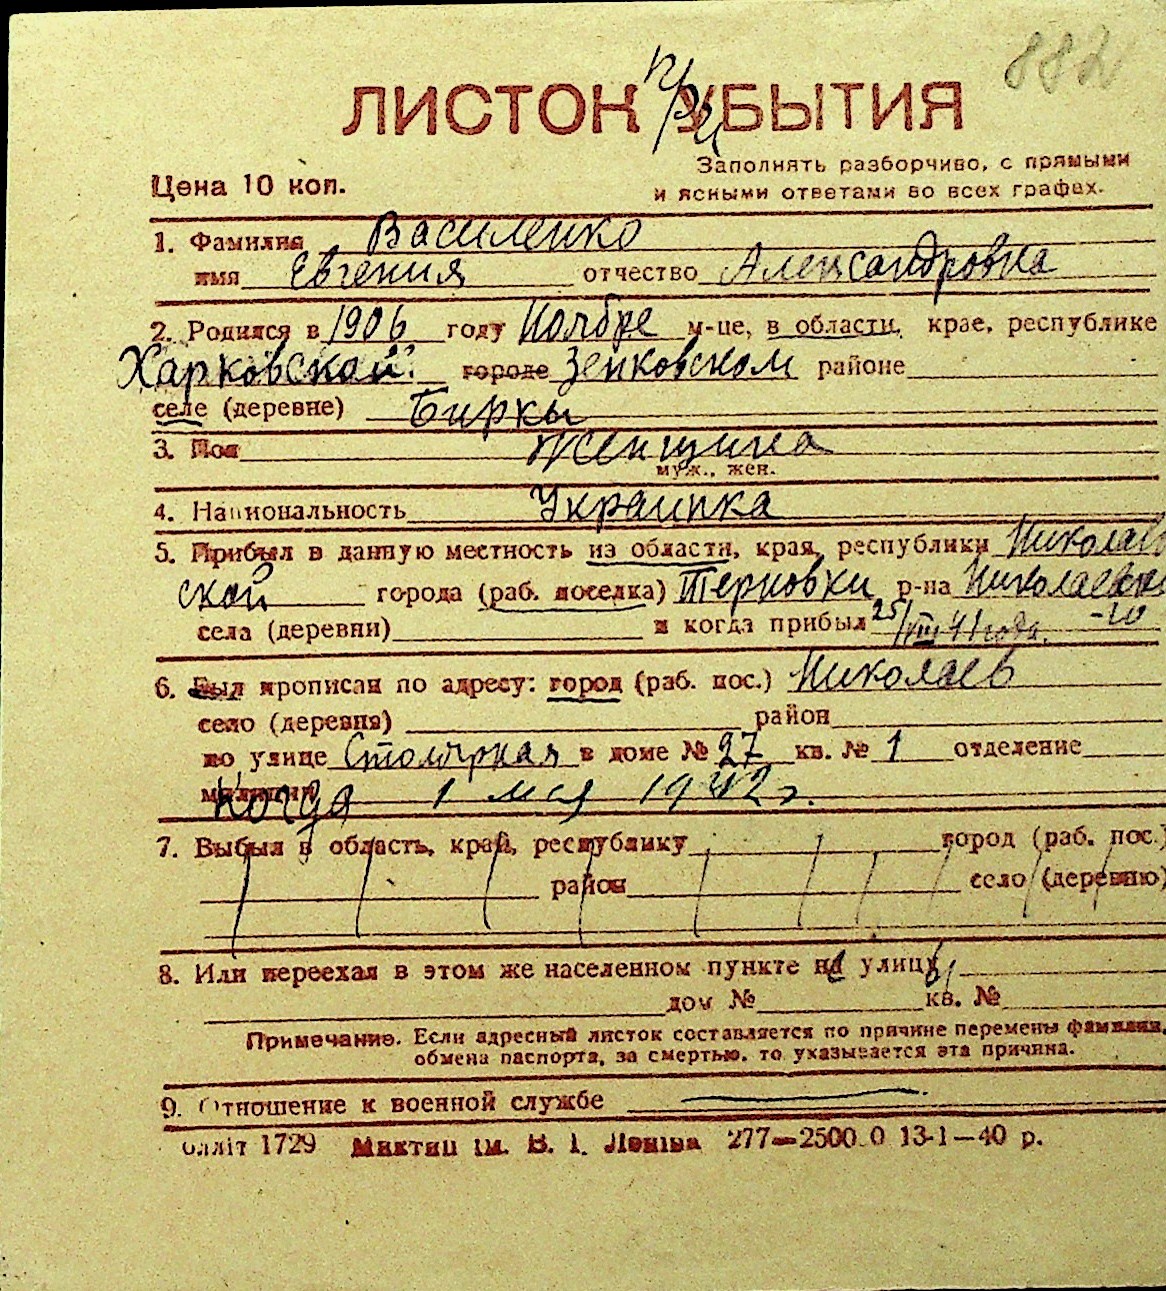 882
ЛИСТОК при УБЫТИЯ
Цена 10 коп.
Заполнять разборчиво, с прямыми
и ясными ответами во всех графах.
1. Фамилия Василенко
имя Евгения отчество Александровна
2. Родился в 1906 году Ноябре м-це, в области, крае, республике
Харковской городе Зенковском районе
селе (деревне) Бирки
3. Пол женщина
муж., жен.
4. Национальность Украинка
5. Прибыл в данную местность из области, края, республики Николаев
ской города (раб. поселка) Терновки р-на Николаевско
села (деревни) и когда прибыл 25/VIII 41 года. -го
6. Был прописан по адресу: город (раб. пос.) Николаев
село (деревня) район
по улице Столярная в доме № 27 кв. № 1 отделение
милиции Когда 1 мая 1942 г.
7. Выбыл в область, край, республику город (раб. пос.)
район село (деревню)
8. Или переехал в этом же населенном пункте на улицу
дом № кв. №
Примечание. Если адресный листок составляется по причине перемены фамилии,
обмена паспорта, за смертью, то указывается эта причина.
9. Отношение к военной службе
олліт 1729 Миктип ім. В. І. Леніна 277—2500 0 13-1—40 р.